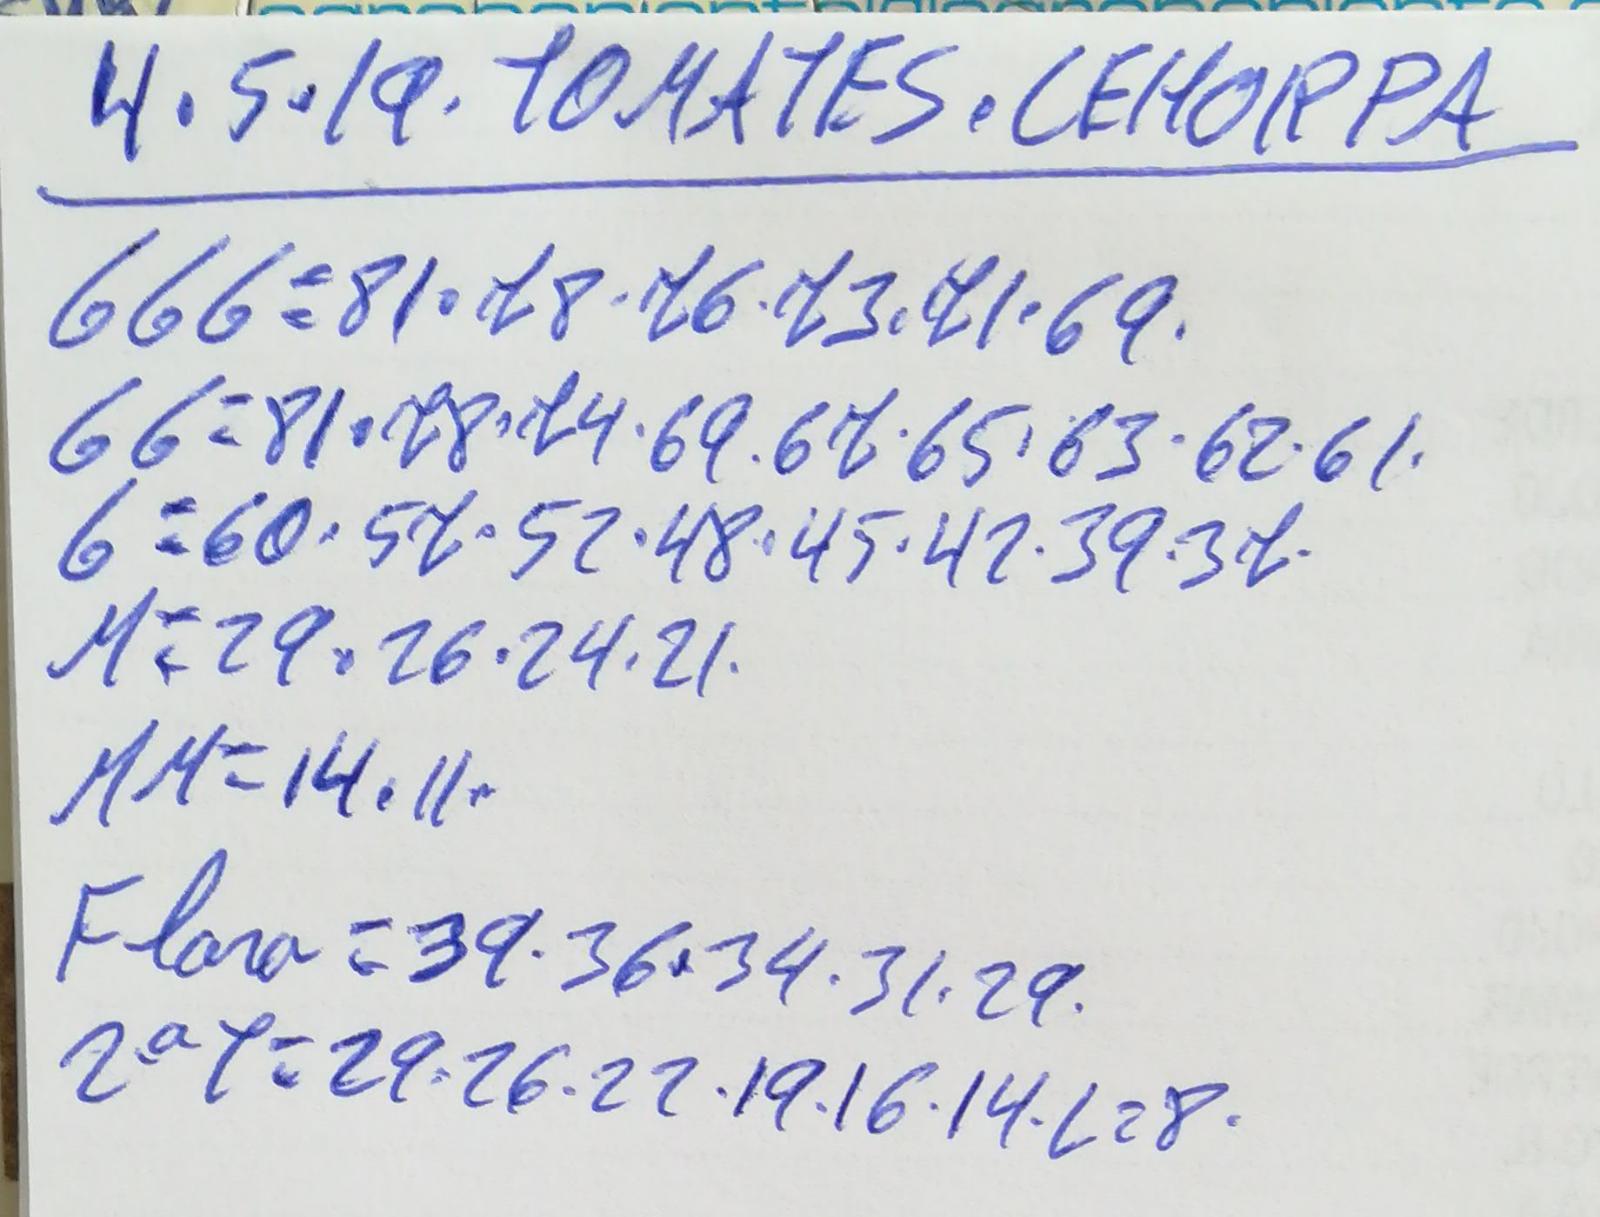 4.5.19. TOMATES. CEHORPA
666=81.78.76.73.71.69.
66=81.78.74.69.67.65.63.62.61.
6=60.57.52.48.45.42.39.37.
M=29.26.24.21.
MM=14.11.
Flora=39.36.34.31.29.
2ª Y=29.26.22.19.16.14.L=8.